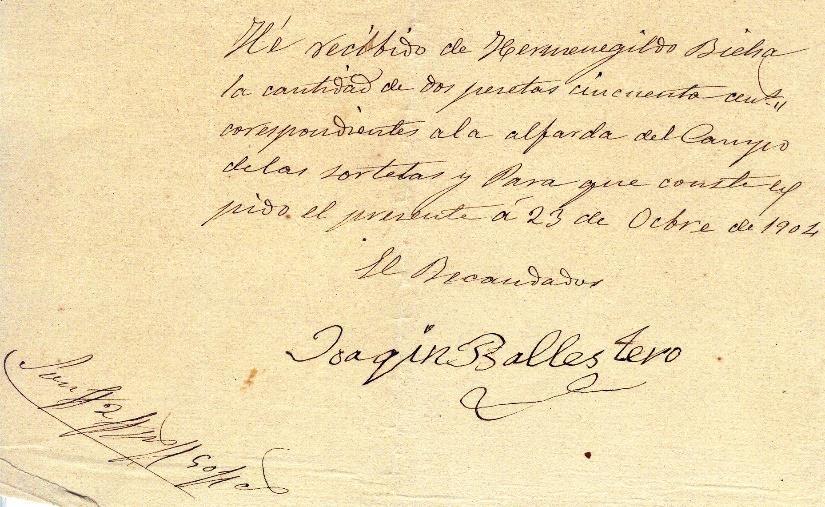 Hé recibido de Hermenegildo Bielsa
la cantidad de dos pesetas cincuenta cent.s
corespondientes ala alfarda del Campo
delas sortetas y Para que conste es
pido el presente á 23 de Ocbre de 1904
El Recaudador
Joaqin Ballestero
Son